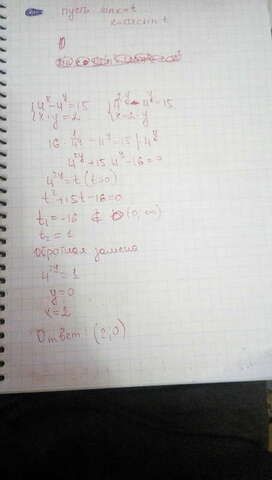 пусть sinx=t
x=arcsin t
{4^x-4^y=15
{x+y=2
{4^{2-y}-4^y=15
{x=2-y
16·1/4^y-4^y=15 |·4^y
4^{2y}+15·4^y-16=0
4^{2y}=t (t>0)
t^2+15t-16=0
t_1=-16 ∉ (0;∞)
t_2=1
Обратная замена
4^{2y}=1
y=0
x=2
Ответ: (2,0)